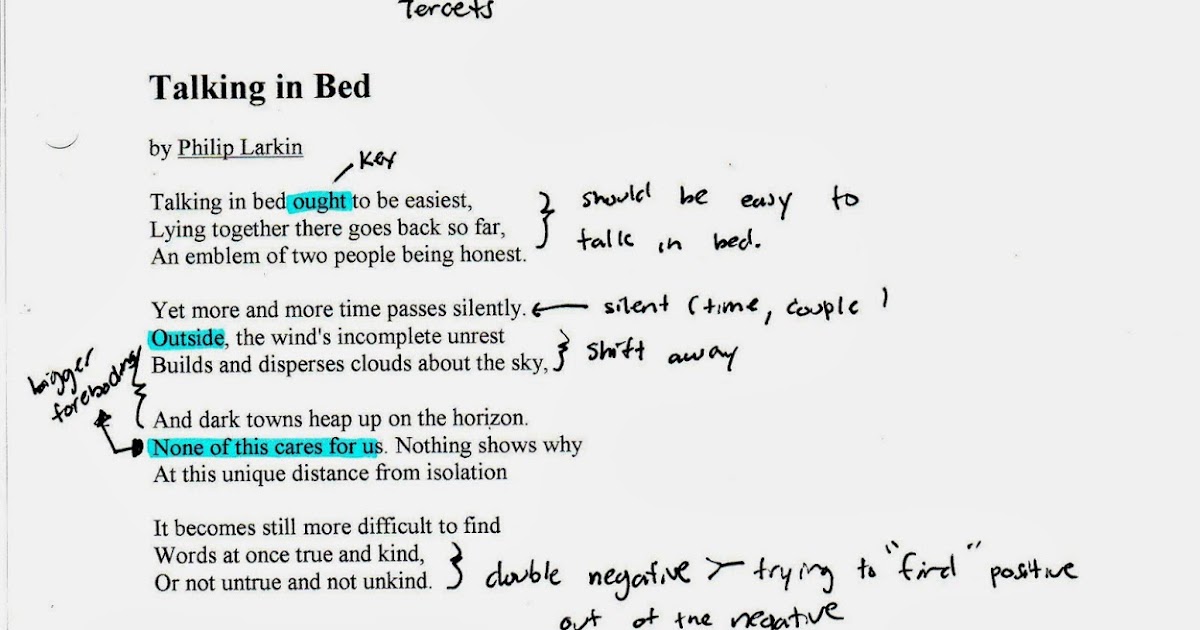 Tercets
Talking in Bed
by Philip Larkin
Key
Talking in bed ought to be easiest,
Lying together there goes back so far,
An emblem of two people being honest.
should be easy to
talk in bed.
Yet more and more time passes silently.
silent (time, couple)
Outside, the wind's incomplete unrest
Builds and disperses clouds about the sky,
shift away
bigger
foreboding
And dark towns heap up on the horizon.
None of this cares for us. Nothing shows why
At this unique distance from isolation
It becomes still more difficult to find
Words at once true and kind,
Or not untrue and not unkind.
double negative trying to "find" positive
out of the negative